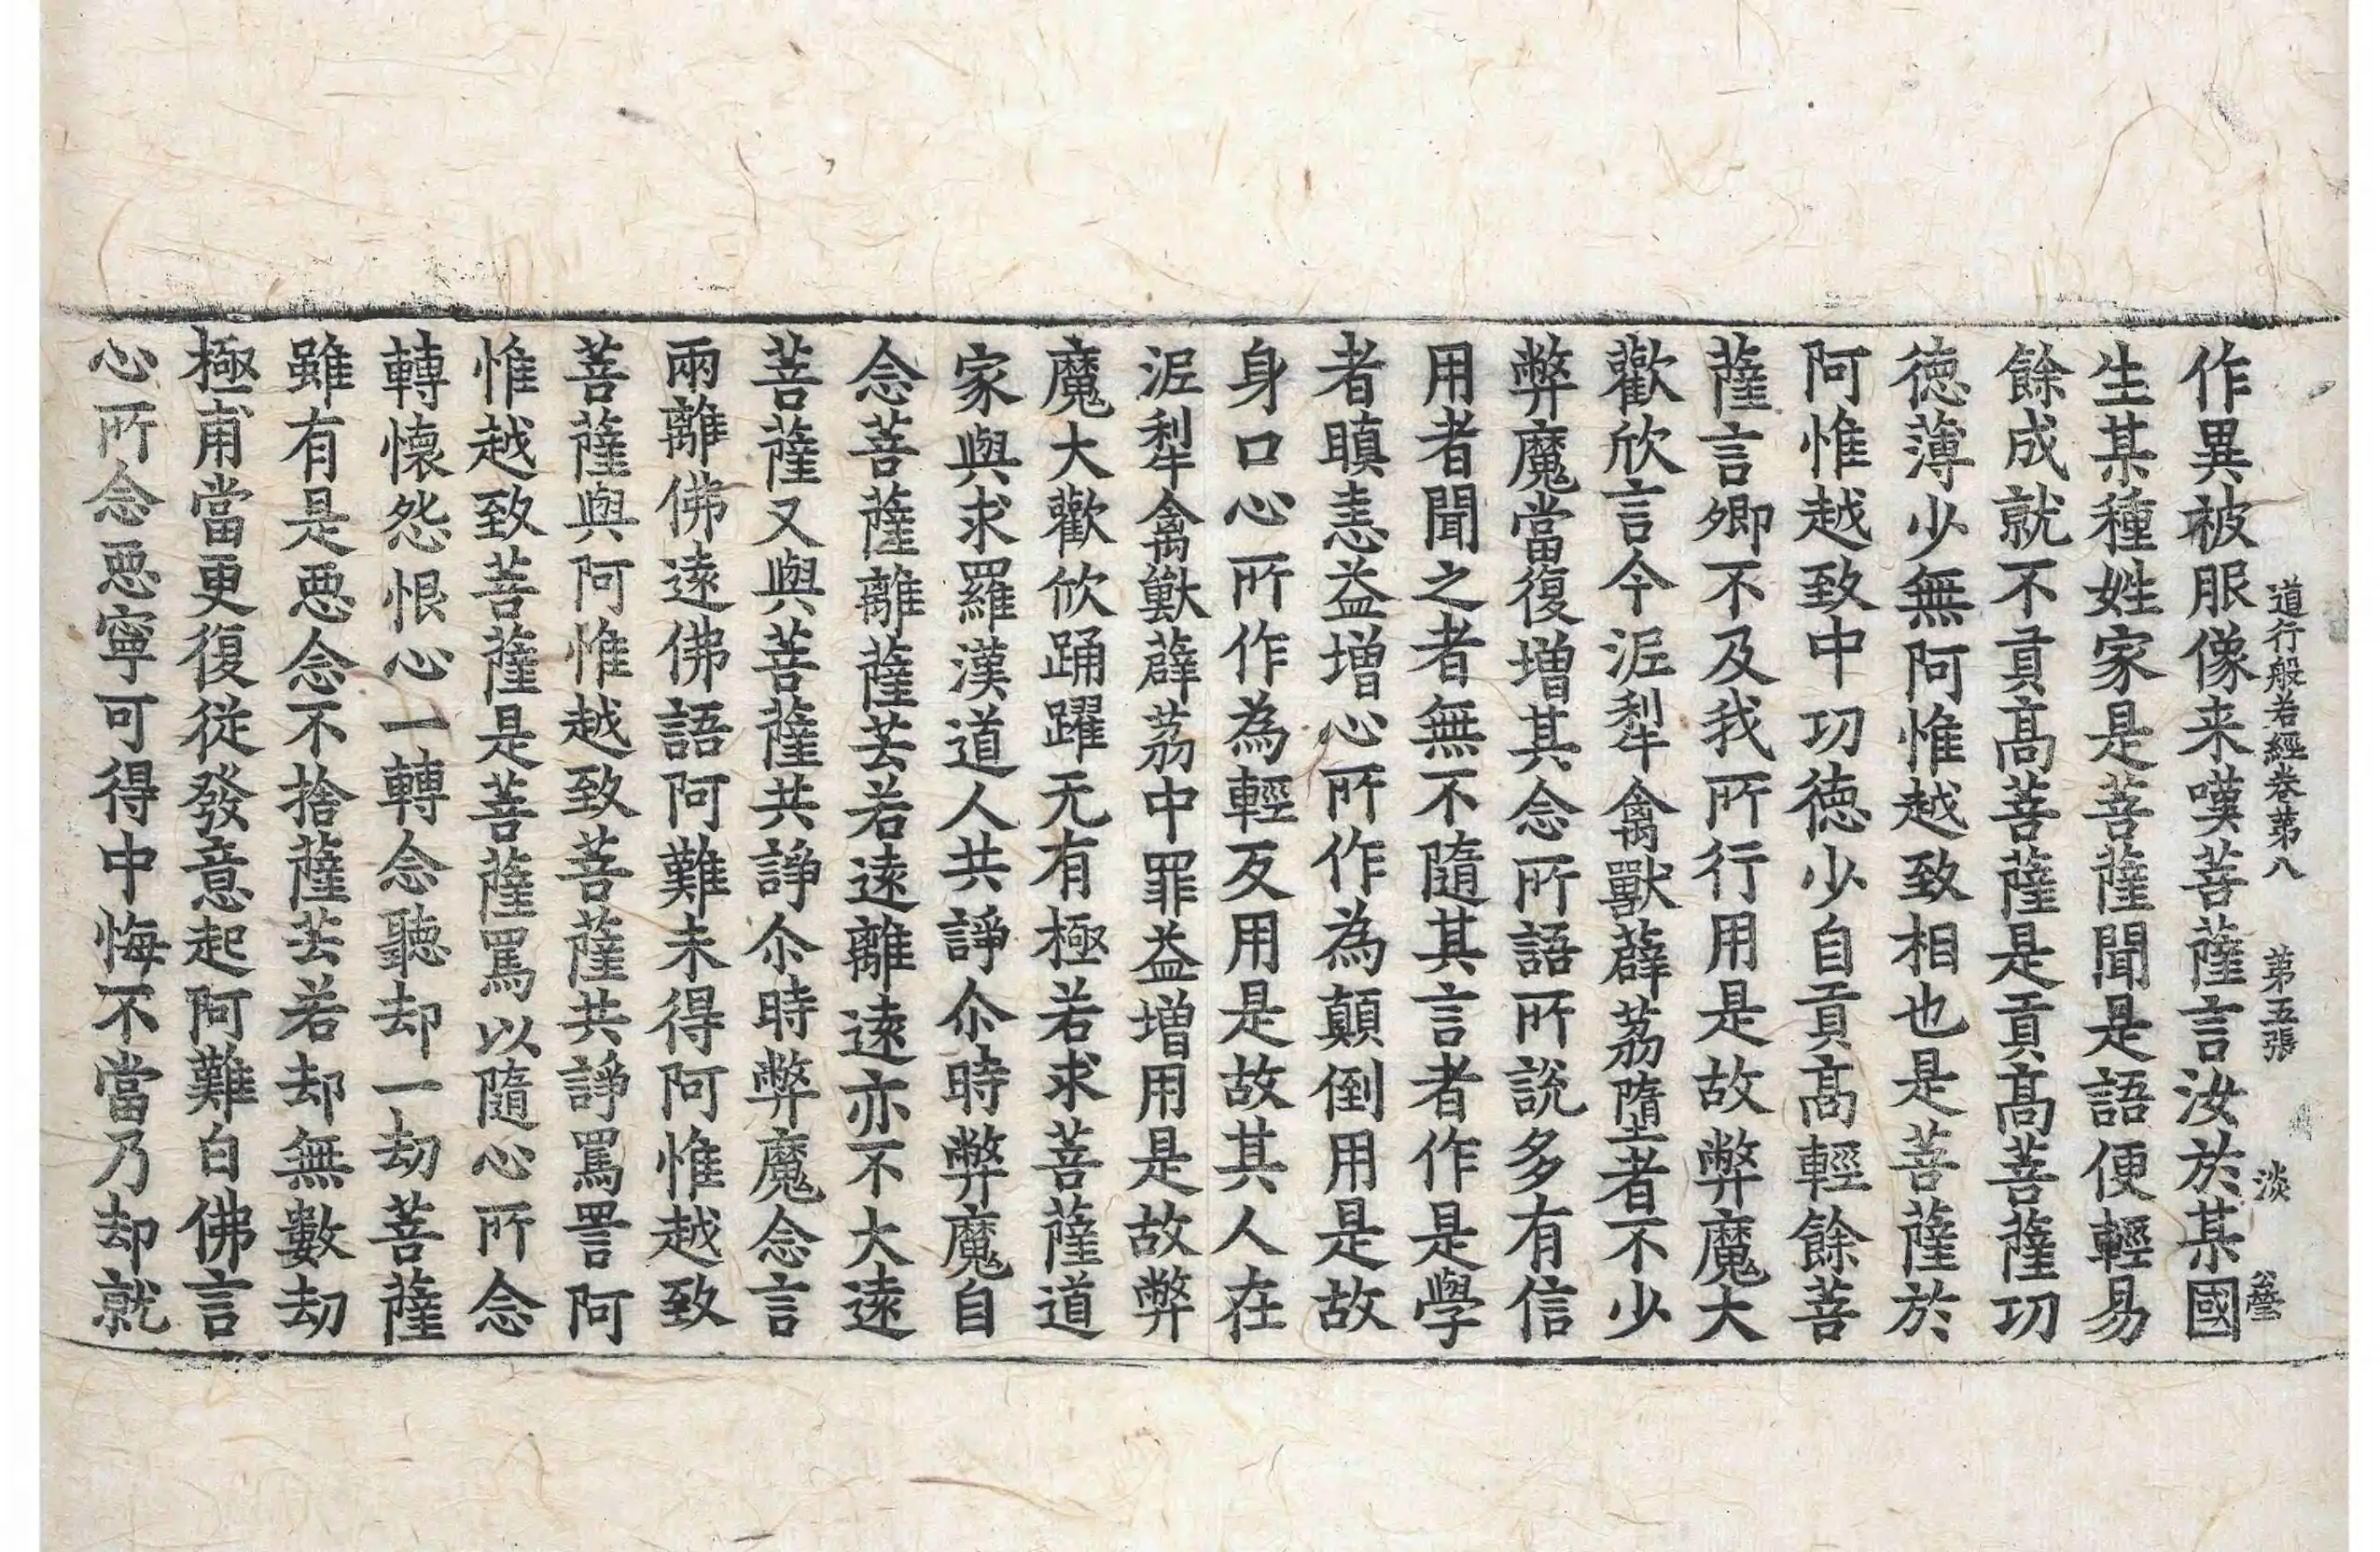 作異被服像来嘆菩薩言汝於某國
道行般若經卷第八 第五張 淡
生某種姓家是菩薩聞是語便輕易
餘成就不貢髙菩薩是貢髙菩薩功
徳薄少無阿惟越致相也是菩薩於
阿惟越致中功徳少自貢髙輕餘菩
薩言卿不及我所行用是故弊魔大
歡欣言今泥犁禽獸薜荔墮者不少
弊魔當復增其念所語所說多有信
用者聞之者無不隨其言者作是學
者瞋恚益增心所作為顛倒用是故
身口心所作為輕反用是故其人在
泥犁禽獸薜荔中罪益增用是故弊
魔大歡欣踊躍无有極若求菩薩道
家與求羅漢道人共諍尒時弊魔自
念菩薩離薩芸若遠離遠亦不大遠
菩薩又與菩薩共諍尒時弊魔念言
兩離佛遠佛語阿難未得阿惟越致
菩薩與阿惟越致菩薩共諍罵詈阿
惟越致菩薩是菩薩罵以隨心所念
轉懷怨恨心一轉念聽却一劫菩薩
雖有是惡念不捨薩芸若却無數劫
極甫當更復從發意起阿難白佛言
心所念惡寧可得中悔不當乃却就